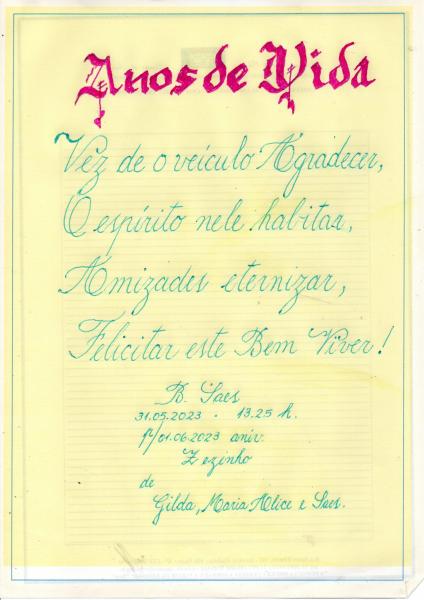 Anos de Vida
Vez de o veículo Agradecer,
O espírito nele habitar,
Amizades eternizar,
Felicitar este Bem Viver!
B. Saes
31.05.2023 - 13.25 h.
p/01.06.2023 aniv.
Zezinho
de
Gilda, Maria Alice e Saes.